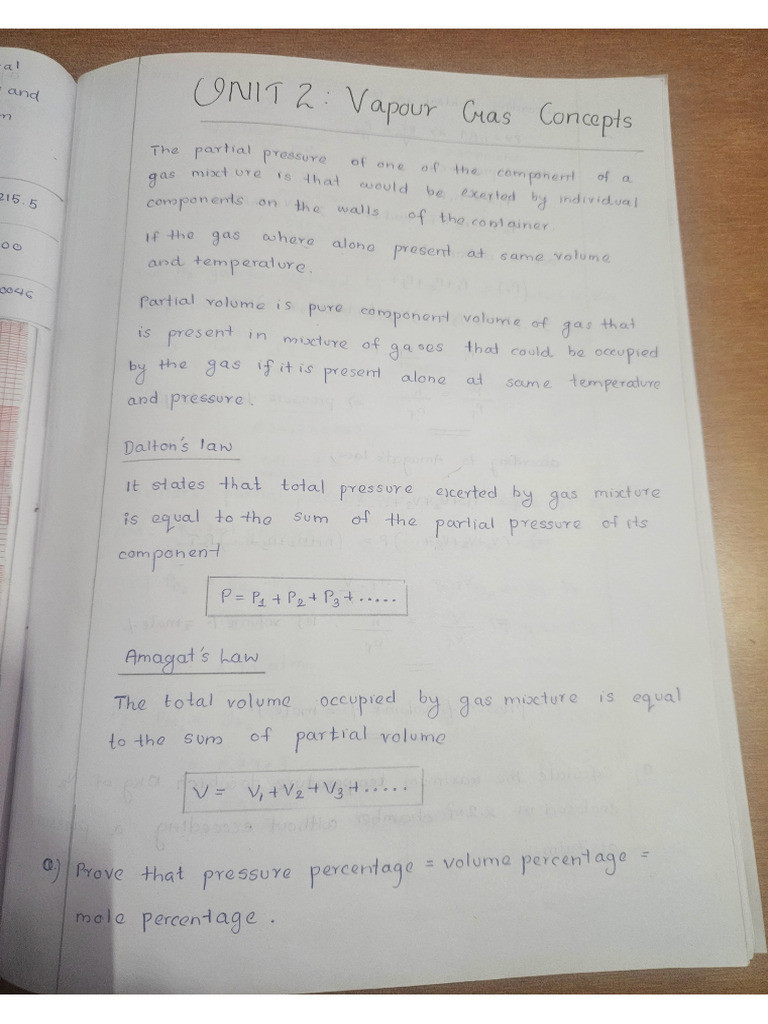 al
and
n
215.5
00
0046
UNIT 2: Vapour Gas Concepts
The partial pressure of one of the component of a
gas mixture is that would be exerted by individual
components on the walls of the container.
If the gas where alone present at same volume
and temperature.
Partial volume is pure component volume of gas that
is present in mixture of gases that could be occupied
by the gas if it is present alone at same temperature
and pressure.
Dalton's law
It states that total pressure exerted by gas mixture
is equal to the sum of the partial pressure of its
component
P = P1 + P2 + P3 + .....
Amagat's Law
The total volume occupied by gas mixture is equal
to the sum of partial volume
V = V1 + V2 + V3 + .....
Q.) Prove that pressure percentage = volume percentage =
mole percentage.